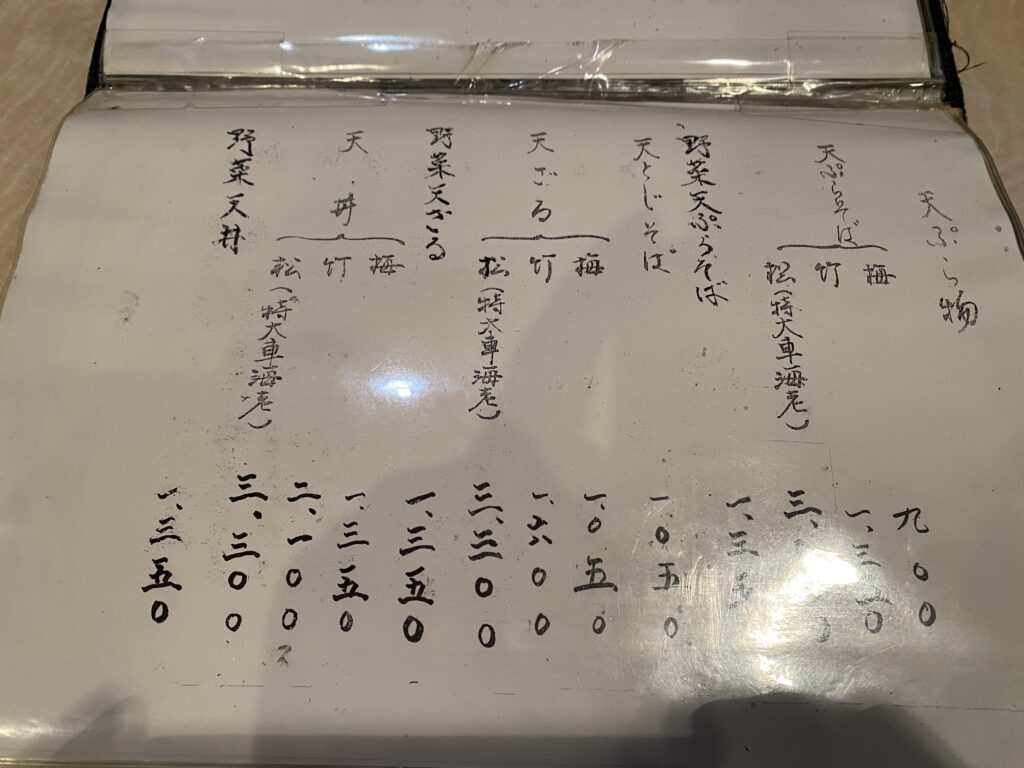 天ぷら物
天ぷらそば
梅 九〇〇
竹
松(特大車海老)
野菜天ぷらそば 一、三五
天とじそば 一、〇五〇
天ざる
梅 一、〇五〇
竹 一、六〇〇
松(特大車海老) 三、三〇〇
野菜天ざる 一、三五〇
天丼
梅 一、三五〇
竹 二、一〇〇
松(特大車海老) 三、三〇〇
野菜天丼 一、三五〇